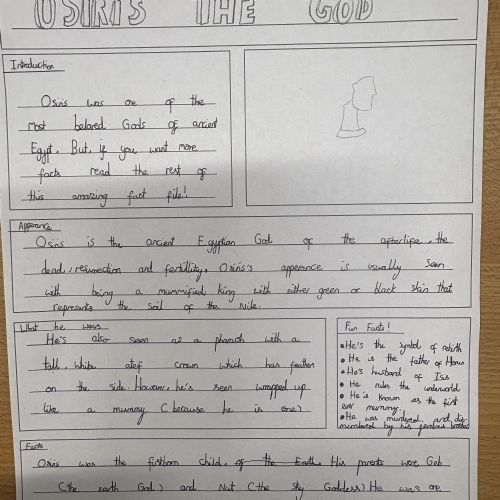 OSIRIS THE GOD
Introduction
Osiris was one of the
most beloved Gods of ancient
Egypt. But, if you want more
facts read the rest of
this amazing fact file!
Apperance
Osiris is the ancient Egyptian God of the afterlife, the
dead, resurrection and fertility. Osiris's apperance is usually seen
with being a mummified king with either green or black skin that
represents the soil of the Nile.
What he wears
He's also seen as a pharaoh with a
tall, white atef crown which has feather
on the side. However, he's seen wrapped up
like a mummy (because he is one)
Fun Facts!
•He's the symbol of rebirth
•He is the father of Horus
•He's husband of Isis
•He rules the underworld
•He is known as the first
ever mummy.
•He was murdered and dis-
membered by his jealous brother
Facts
Osiris was the firstborn child, of the Earth His parents were Geb
(the earth God) and Nut (the sky Goddess) He was one